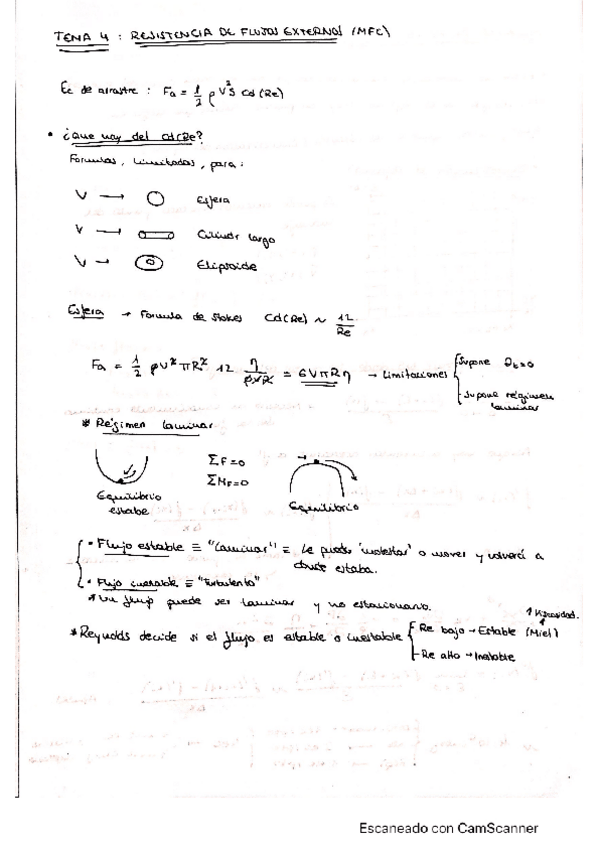 TEMA 4 : RESISTENCIA DE FLUJOS EXTERNOS (MFC)
Ec de arrastre : Fa = 1/2 ρ V² S Cd(Re)
• ¿Que hay del Cd(Re)?
Formulas, limitadas, para:
V → Esfera
V → Cilindr largo
V → Elipsoide
Esfera → Formula de Stokes Cd(Re) ~ 12/Re
Fa = 1/2 ρ V² π R² 12 η/ρVR = 6VπRη → Limitaciones { Supone ∂t=0
Supone régimen laminar
* Régimen laminar
ΣF=0
ΣMF=0
Equilibrio estabe
Equilibrio
• Flujo estable ≡ "Laminar" ≡ Le puedo 'molestar' o mover y volverá a
donde estaba.
• Flujo inestable ≡ "Turbulento"
* Un flujo puede ser laminar y no estacionario.
↑ Viscosidad.
* Reynolds decide si el flujo es estable o inestable { Re bajo → Estable (Miel)
Re alto → Inestable
Escaneado con CamScanner